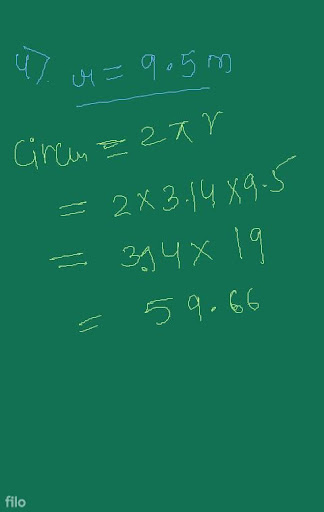 4). r = 9.5 m
Circum = 2πr
= 2×3.14×9.5
= 3.14× 19
= 59.66
filo